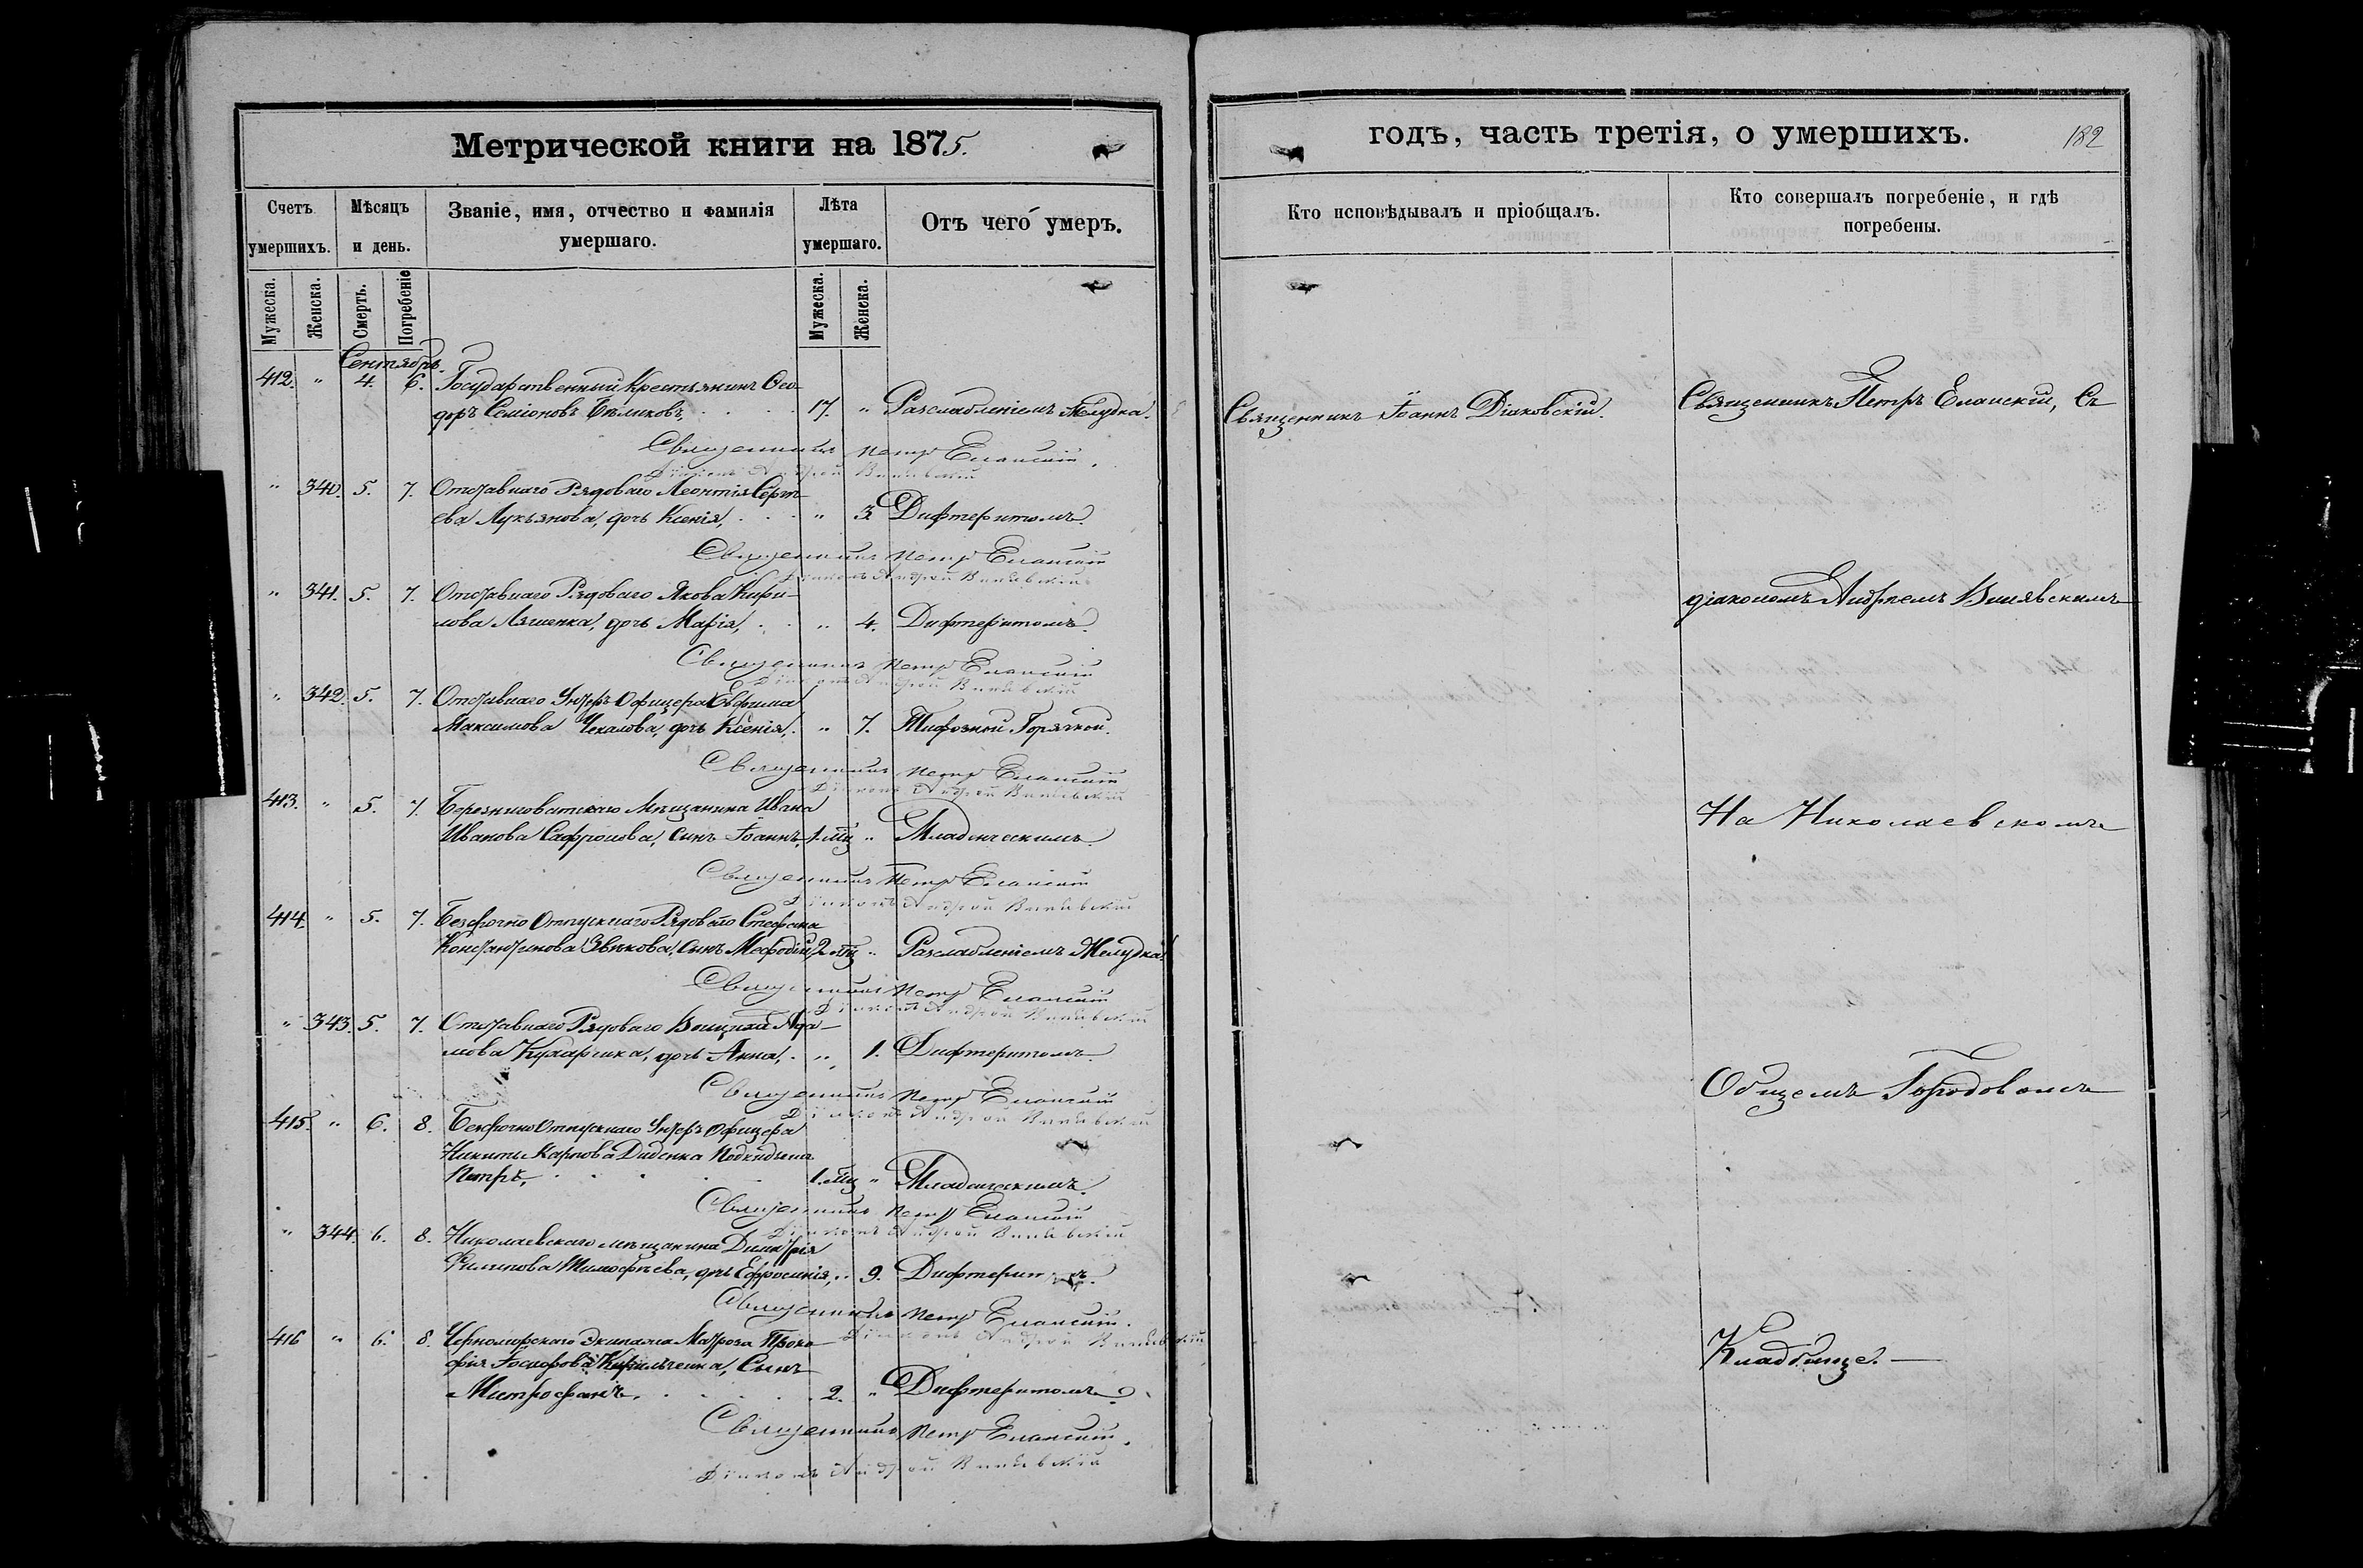 Метрической книги на 1875.
Счетъ умершихъ.
Мѣсяцъ и день.
Званіе, имя, отчество и фамилія умершаго.
Лѣта умершаго.
Отъ чего умеръ.
Мужеска.
Женска.
Смерть.
Погребеніе
Мужеска.
Женска.
Сентябрь.
412. " 4. 6. Государственный Крестьянинъ Ѳео-
доръ Семіоновъ Бѣликовъ, 17. " Разслабленіемъ Желудка.
Священникъ Петръ Еланскій.
Діаконъ Андрей
" 340. 5. 7. Отставнаго Рядоваго Леонтія Серг-
ева Лукьянова, дочь Ксенія, " 3. Дифтеритомъ.
Священникъ Петръ Еланскій
Діаконъ Андрей
" 341. 5. 7. Отставнаго Рядоваго Якова Кири-
лова Ляшенка, дочь Марія, " 4. Дифтеритомъ.
Священникъ Петръ Еланскій
Діаконъ Андрей
" 342. 5. 7. Отставнаго Унтеръ Офицера Евфима
Максимова Чекалова, дочь Ксенія, " 7. Тифозной Горячкой.
Священникъ Петръ Еланскій
Діаконъ Андрей
413. " 5. 7. Березниговатскаго Мѣщанина Ивана
Иванова Сафронова, сынъ Іоаннъ, 1. мц " Младенческимъ.
Священникъ Петръ Еланскій
Діаконъ Андрей
414. " 5. 7. Безсрочно Отпускнаго Рядоваго Стефана
Константинова Звѣкова, сынъ Мефодій, 2 мц " Разслабленіемъ Желудка.
Священникъ Петръ Еланскій
Діаконъ Андрей
" 343. 5. 7. Отставнаго Рядоваго Ада-
мова Кухарчика, дочь Анна, " 1. Дифтеритомъ.
Священникъ Петръ Еланскій
Діаконъ Андрей
415. " 6. 8. Безсрочно Отпускнаго Унтеръ Офицера
Никиты Карпова Диденка Подкидышъ
Петръ, 1. мц " Младенческимъ.
Священникъ Петръ Еланскій
Діаконъ Андрей
" 344. 6. 8. Николаевскаго мѣщанина Димитрія
Филипова Тимофѣева, дочь Ефросинія, " 9. Дифтеритомъ.
Священникъ Петръ Еланскій.
Діаконъ Андрей
416 " 6. 8. Черноморскаго Экипажа Матроза Проко-
фія Кирильченка, Сынъ
Митрофанъ, 2. " Дифтеритомъ.
Священникъ Петръ Еланскій.
Діаконъ Андрей
годѣ, часть третія, о умершихъ.
182
Кто исповѣдывалъ и пріобщалъ.
Кто совершалъ погребеніе, и гдѣ погребены.
Священникъ Іоаннъ Діаковскій.
Священникъ Петръ Еланскій, Съ
діакономъ Андреемъ
На Николаевскомъ
Общемъ Городовомъ
Кладбище.